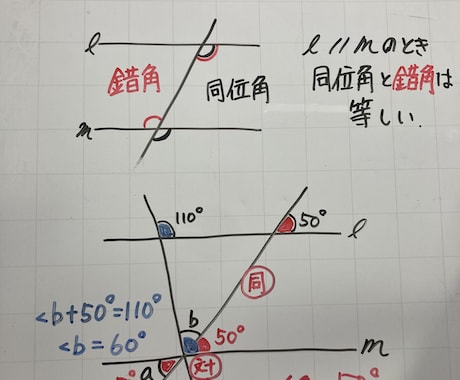 ℓ
錯角
同位角
m
ℓ//mのとき
同位角と錯角は
等しい.
110°
50°
ℓ
同
<b+50°=110°
<b=60°
b
50°
m
a
対